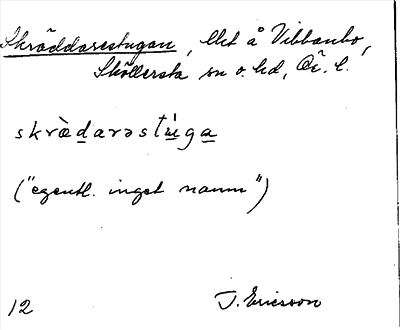 Skräddarestugan, llet å Vibbanbo,
Sköllersta sn o. hd, Ör. l.
skræ̀darəstúga
("egentl. inget namn")
12 J. Ericsson